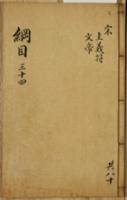 宋
主義符
文帝
綱目
三十四
共八十